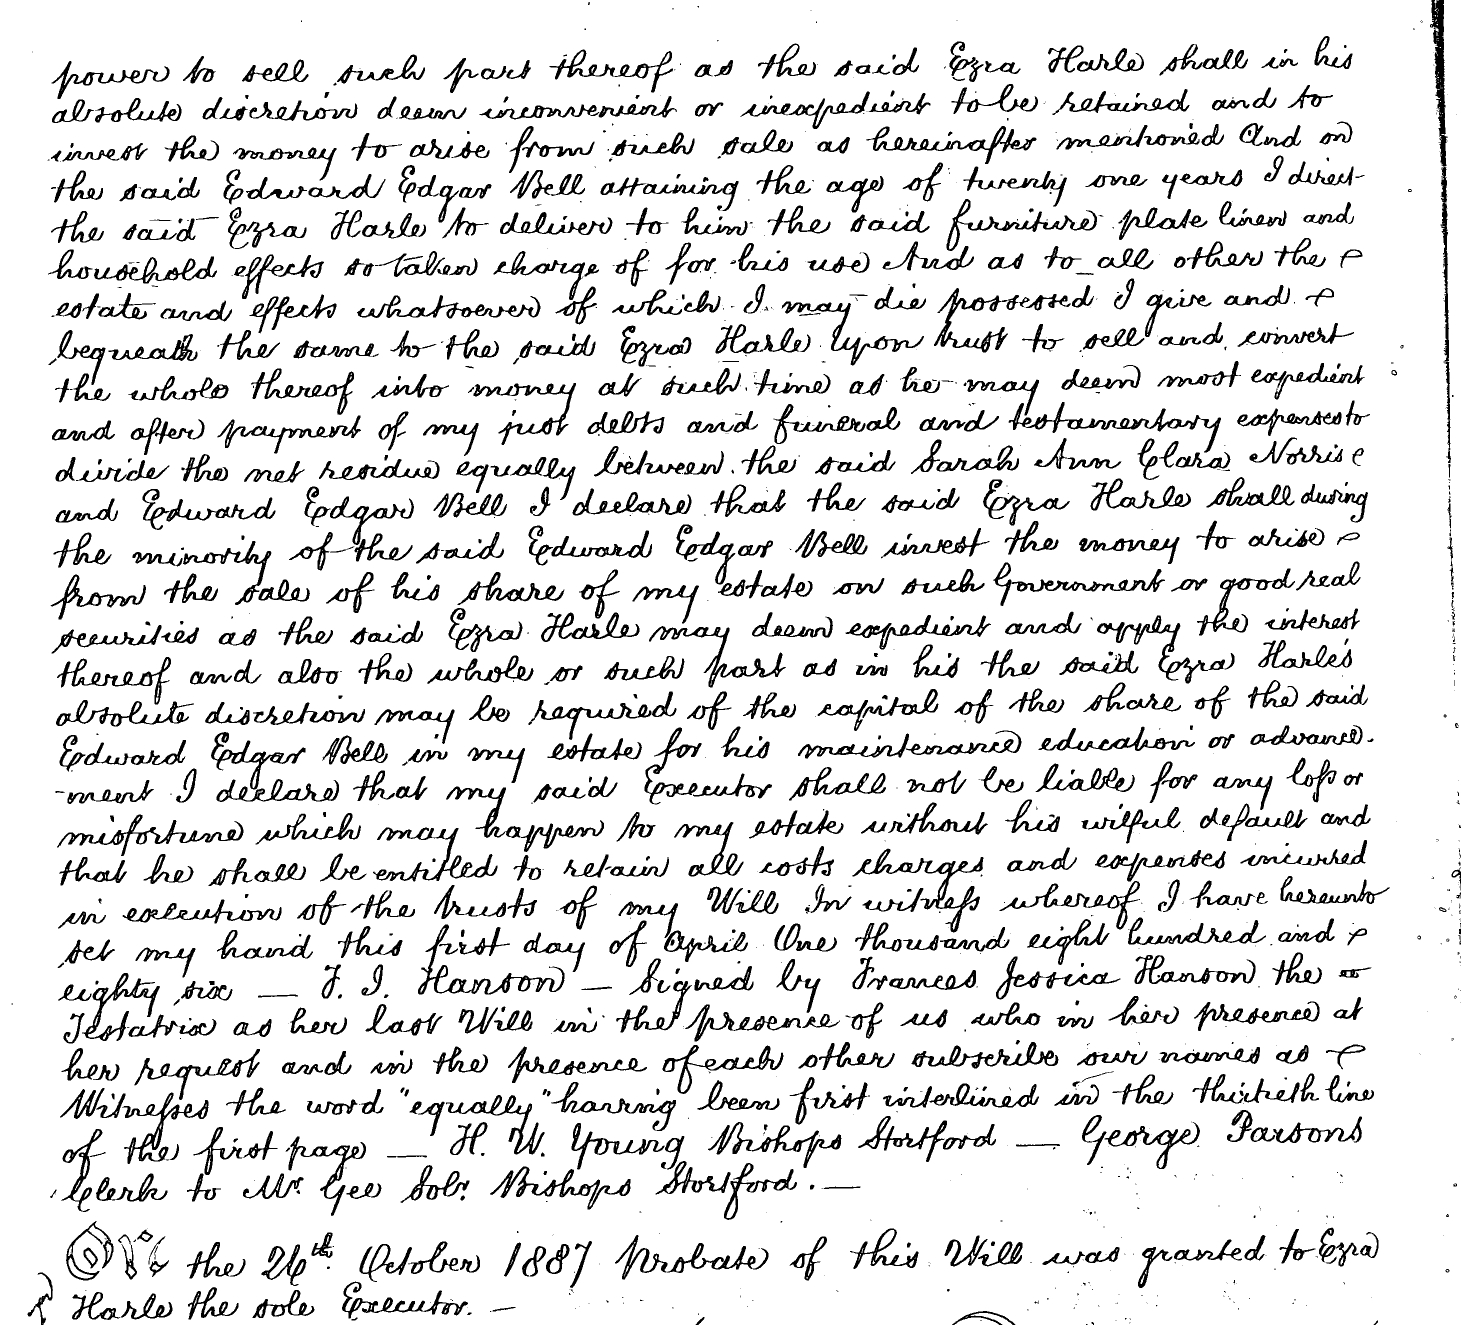 power to sell such part thereof as the said Ezra Harle shall in his
absolute discretion deem inconvenient or inexpedient to be retained and to
invest the money to arise from such sale as hereinafter mentioned And on
the said Edward Edgar Bell attaining the age of twenty one years I direct
the said Ezra Harle to deliver to him the said furniture plate linen and
household effects so taken charge of for his use And as to all other the
estate and effects whatsoever of which I may die possessed I give and
bequeath the same to the said Ezra Harle Upon trust to sell and convert
the whole thereof into money at such time as he may deem most expedient
and after payment of my just debts and funeral and testamentary expenses to
divide the net residue equally between the said Sarah Ann Clara Norris
and Edward Edgar Bell I declare that the said Ezra Harle shall during
the minority of the said Edward Edgar Bell invest the money to arise
from the sale of his share of my estate on such Government or good real
securities as the said Ezra Harle may deem expedient and apply the interest
thereof and also the whole or such part as in his the said Ezra Harle's
absolute discretion may be required of the capital of the share of the said
Edward Edgar Bell in my estate for his maintenance education or advance-
-ment I declare that my said Executor shall not be liable for any loss or
misfortune which may happen to my estate without his wilful default and
that he shall be entitled to retain all costs charges and expenses incurred
in execution of the trusts of my Will In witness whereof I have hereunto
set my hand this first day of April One thousand eight hundred and
eighty six — F. J. Hanson — Signed by Frances Jessica Hanson the
Testatrix as her last Will in the presence of us who in her presence at
her request and in the presence of each other subscribe our names as
Witnesses the word "equally" having been first interlined in the thirtieth line
of the first page — H. W. Young Bishops Stortford — George Parsons
Clerk to Mr. Gee Solr. Bishops Stortford. —
On the 26th October 1887 Probate of this Will was granted to Ezra
Harle the sole Executor. —